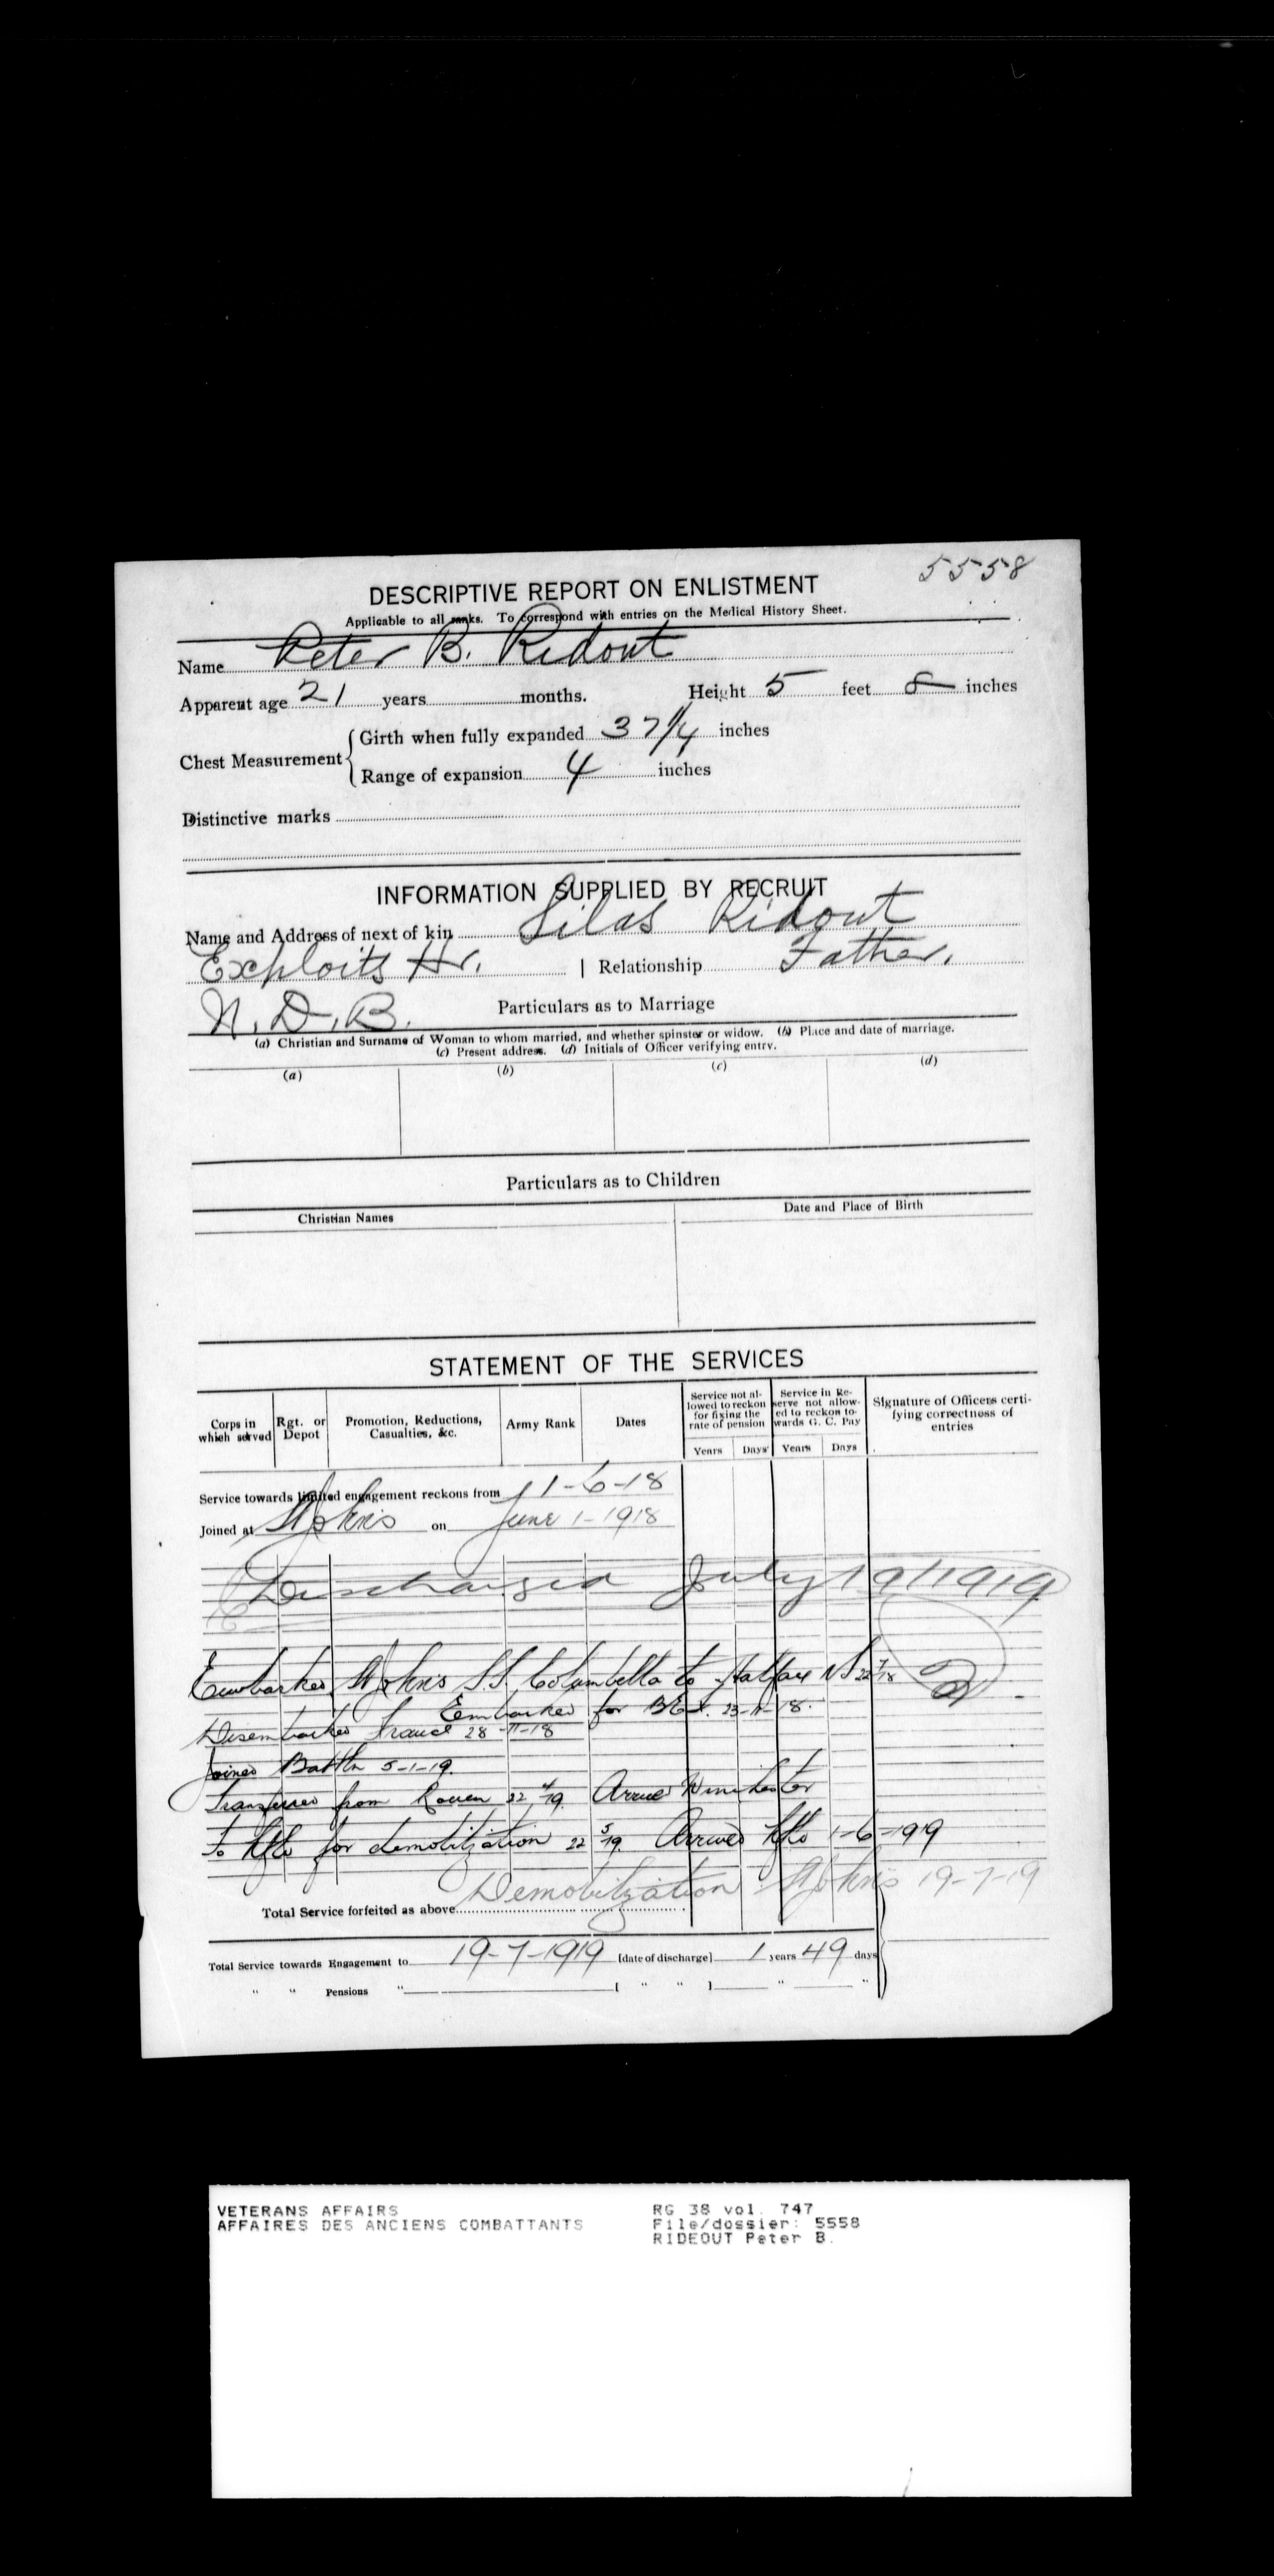 5558
DESCRIPTIVE REPORT ON ENLISTMENT
Applicable to all ranks. To correspond with entries on the Medical History Sheet.
Name Peter B. Ridout
Apparent age 21 years months. Height 5 feet 8 inches
Chest Measurement { Girth when fully expanded 37 1/4 inches
Range of expansion 4 inches
Distinctive marks
INFORMATION SUPPLIED BY RECRUIT
Name and Address of next of kin Silas Ridout
Exploits Hr. | Relationship Father.
N. D. B.
Particulars as to Marriage
(a) Christian and Surname of Woman to whom married, and whether spinster or widow. (b) Place and date of marriage.
(c) Present address. (d) Initials of Officer verifying entry.
(a) (b) (c) (d)
Particulars as to Children
Christian Names Date and Place of Birth
STATEMENT OF THE SERVICES
Corps in which served Rgt. or Depot Promotion, Reductions, Casualties, &c. Army Rank Dates Service not allowed to reckon for fixing the rate of pension Service in Reserve not allowed to reckon towards G. C. Pay Signature of Officers certifying correctness of entries
Years Days Years Days
Service towards limited engagement reckons from 1-6-18
Joined at St Johns on June 1-1918
Discharged July 19/1919
Embarked St Johns S.S. Columbella to Halifax N S 22 7/18
Embarked for B.E.F. 23-11-18.
Disembarked France 28-11-18
Joined Battln 5-1-19.
Transferred from Rouen 22 4/19. Arrived Winchester
To Nfld for demobilization 22 5/19. Arrived Nfld 1-6-1919
Demobilization St Johns 19-7-19
Total Service forfeited as above
Total Service towards Engagement to 19-7-1919 [date of discharge] 1 years 49 days
" " Pensions " [ " " ] " "
VETERANS AFFAIRS RG 38 vol. 747
AFFAIRES DES ANCIENS COMBATTANTS File/dossier: 5558
RIDEOUT Peter B.